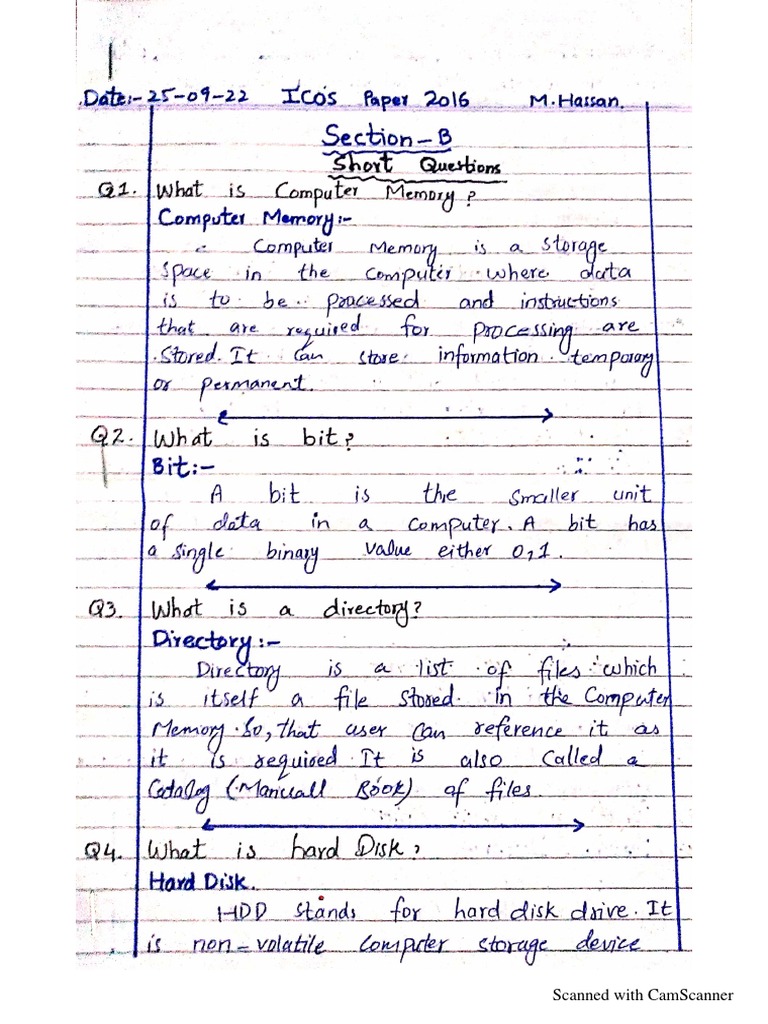 Date:- 25-09-22 ICOS Paper 2016 M.Hassan.
Section-B
Short Questions
Q1. What is Computer Memory?
Computer Memory:-
Computer Memory is a storage
space in the computer where data
is to be processed and instructions
that are required for processing are
stored. It can store information temporay
or permanent.
Q2. What is bit?
Bit:-
A bit is the smaller unit
of data in a computer. A bit has
a single binary value either 0,1.
Q3. What is a directory?
Directory:-
Directory is a list of files which
is itself a file stored in the Computer
Memory. So, that user can reference it as
it is required It is also called a
Catalog (Manuall Book) of files
Q4. What is hard Disk?
Hard Disk.
HDD stands for hard disk drive. It
is non-volatile computer storage device
Scanned with CamScanner